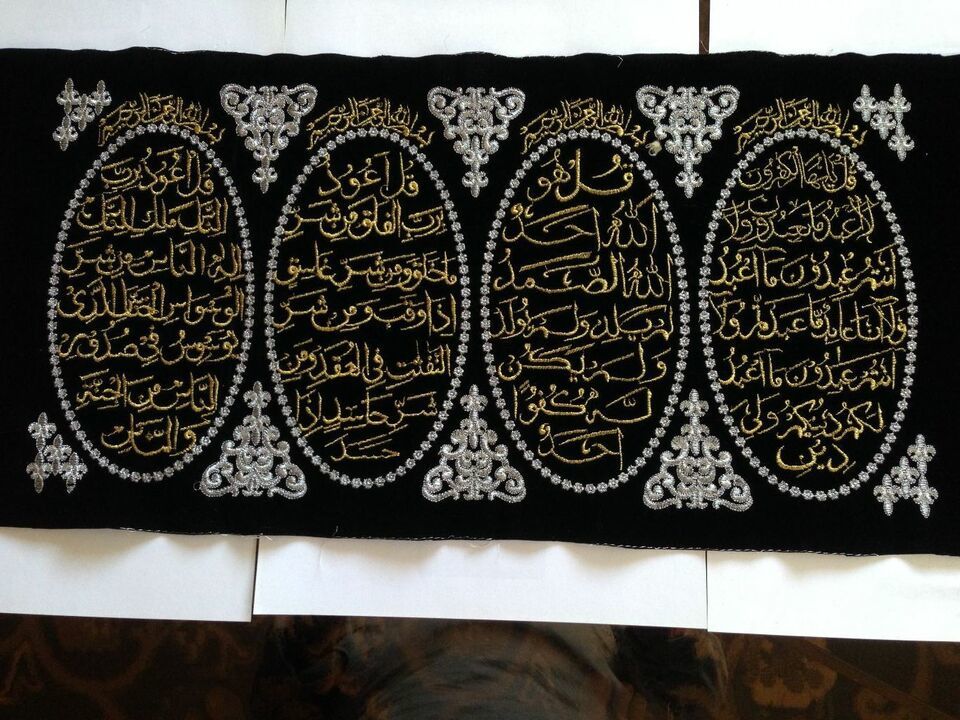 بسم الله الرحمن الرحيم
قل يايها الكفرون
لا اعبد ما تعبدون ولا
انتم عبدون ما اعبد
ولا انا عابد ما عبدتم ولا
انتم عبدون ما اعبد
لكم دينكم ولي
دين
بسم الله الرحمن الرحيم
قل هو
الله احد
الله الصمد
لم يلد ولم يولد
ولم يكن
له كفوا
احد
بسم الله الرحمن الرحيم
قل اعوذ
برب الفلق من شر
ما خلق ومن شر غاسق
اذا وقب ومن شر
النفثت في العقد ومن
شر حاسد اذا
حسد
بسم الله الرحمن الرحيم
قل اعوذ برب
الناس ملك الناس
اله الناس من شر
الوسواس الخناس الذي
يوسوس في صدور
الناس من الجنة
والناس